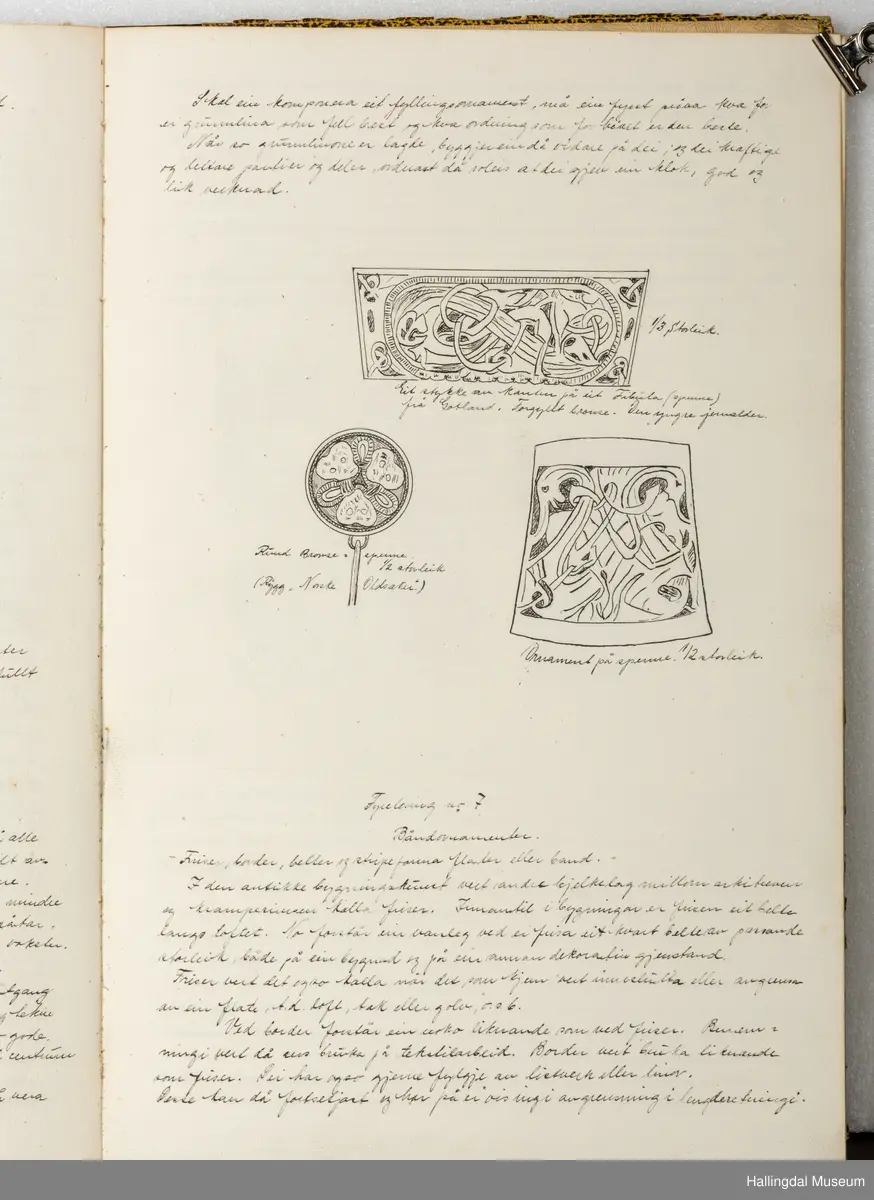 Skal ein komponera eit fyllingsornament, må ein fyrst prøva kva for
ei grunnlina som fell best og kva ordning som for bêdet er den beste.
Når so grunnlinone er lagde, byggjer ein då vidare på dei, og dei kraftige
og lettare partier og deler, ordnast då soleis at dei gjev ein klok, god og
lik verknad.
1/3 Storleik.
Eit stykke av kanten på eit Fibula (spenne)
frå Gotland. Forgyllt bronse. Den yngre jernalder.
Rund Bronse = spenne.
1/2 storleik
(Rygg. Norske Oldsaker.)
Ornament på spenne. 1/2 storleik.
Fyrelesning nr 7
Bandornamenter.
- Friser, border, belter og stripeforma flater eller band. -
I den antikke bygningskunst vert andre bjelkelag millom arkitraven
og kransgesimsen kalla friser. Innantil i bygningar er frisen eit belte
langs loftet. No forstår ein vanleg ved ei frisa eit kvart belte av passande
storleik, både på ein bygnad og på ein annan dekorativ gjenstand.
Friser vert det ogso kalla når det, som
av ein flate, t.d. loft, tak eller golv, o.s.b.
Ved border forstår ein noko liknande som ved friser. Benem =
ningi vert då bruka på tekstilarbeid. Border vert bruka liknande
som friser. Dei har ogso gjerne fylgje av listverk eller linor.
Desse kan då fortsetjast og har på ei vis ingi avgrensning i lengderetningi.
alle
mindre
centrum
vera
Hallingdal Museum